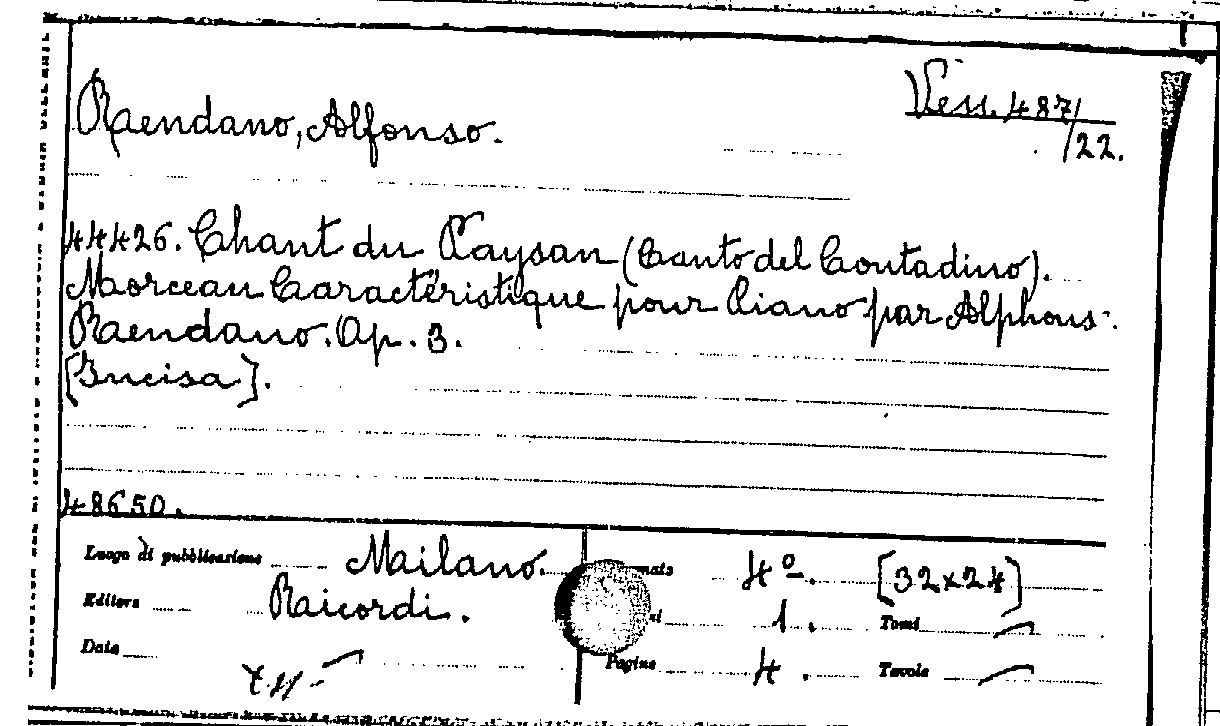 Rendano, Alfonso.
Vess. 487/22.
44426. Chant du Paysan (Canto del Contadino).
Morceau Caractéristique pour Piano par Alphons.
Rendano. Op. 3.
[Incisa].
48650.
Luogo di pubblicazione Milano. 4º. [32x24]
Editore Ricordi. 1. Tomi
Data Pagine 4. Tavole